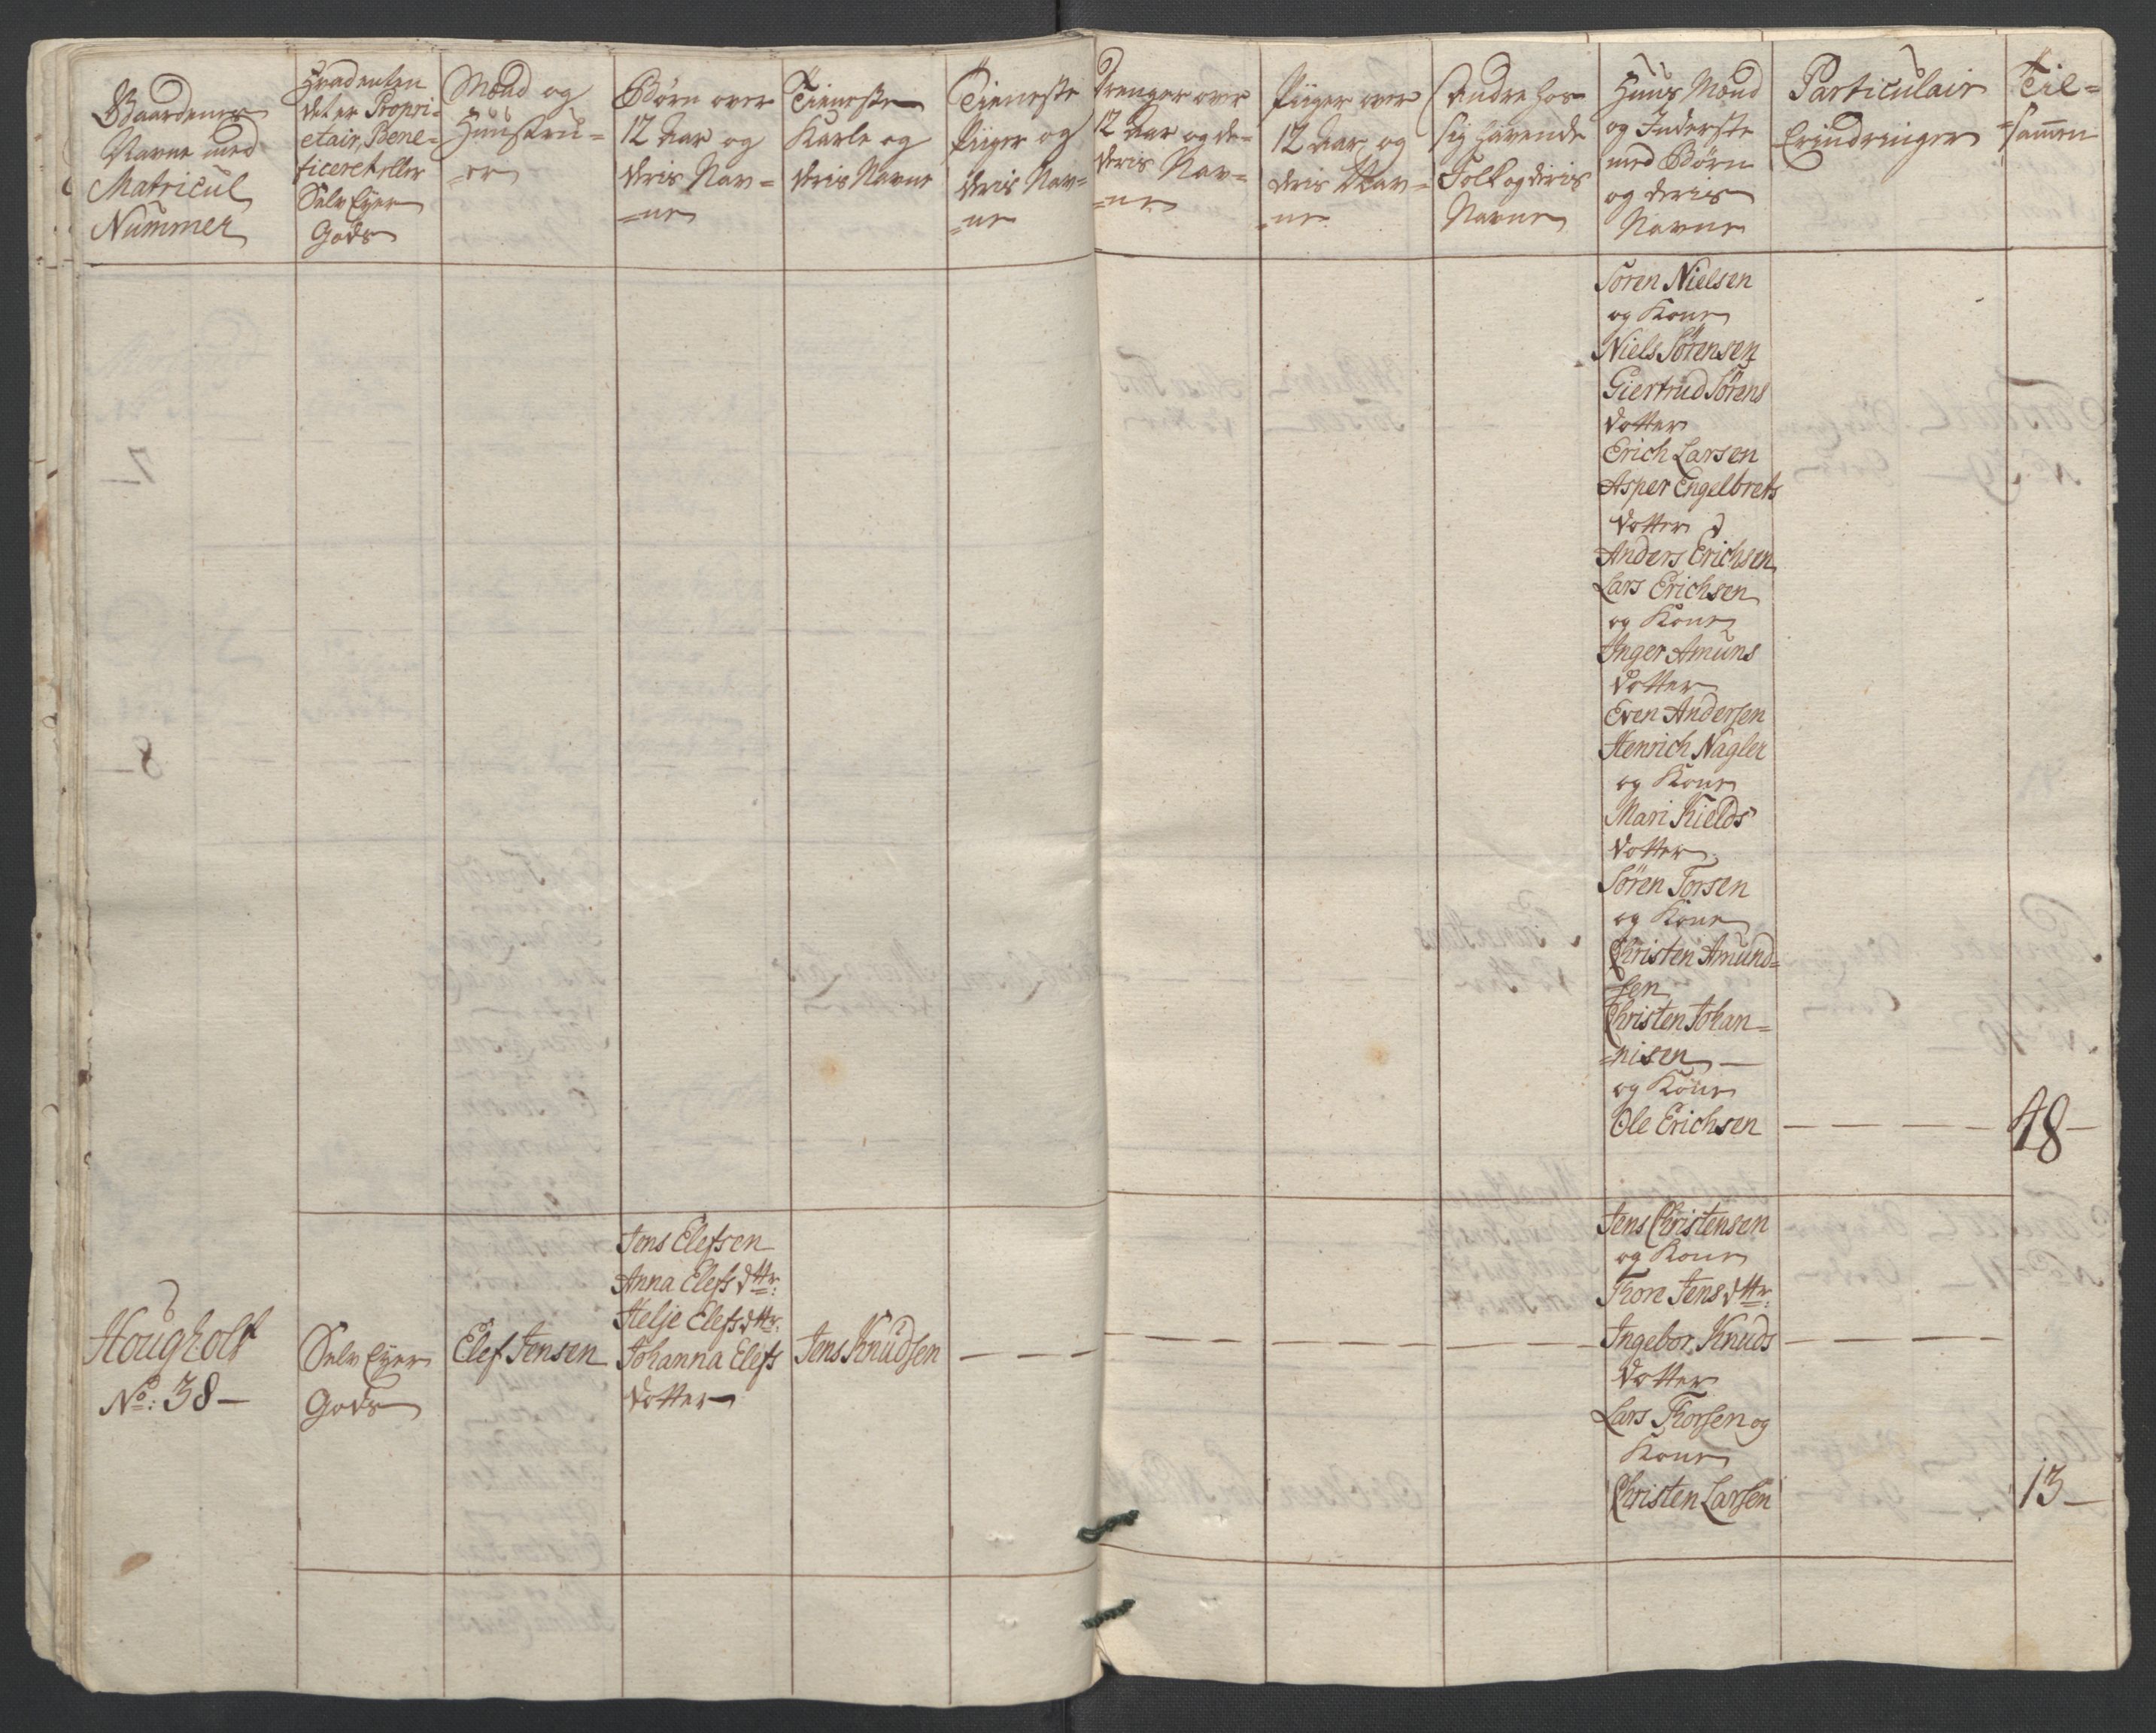 Gaardenes
Navne med
Matricul
Nummer
Hvadenten
det er Propri-
etair, Bene-
ficeret eller
Selv Eyer
Gods
Mænd og
Hustru-
=er
Børn over
12 Aar og
deris Nav=
=ne
Tieneste
Karle og
deris Navne
Tieneste
Piiger og
deris Nav=
=ne
Drenger over
12 Aar og de=
deris Nav=
=ne
Piiger over
12 Aar og
deris Nav=
=ne
Andre hos
sig havende
Folk og deris
Navne
Huus Mænd
og Inderste
med Børn
og deris
Navne
Particulair
Erindringer
Til=
=sammen
Søren Nielsen
og Kone
Niels Sørensen
Giertrud Sørens
dotter
Erich Larsen
Asper Engelbrets
dotter
Anders Erichsen
Lars Erichsen
og Kone
Inger Amuns
dotter
Even Andersen
Henrich Nagler
og Kone
Mari Kields
dotter
Søren Torsen
og Kone
Christen Amund=
=sen
Christen Johan=
=nisen —
og Kone
Ole Erichsen — — — — 48 —
Hougholt
No: 38 —
Selv Eyer
Gods
Elef Jensen
Jens Elefsen
Anna Elefs dttr:
Helje Elefs dttr:
Johanna Elefs
dotter
Jens Knudsen — — —
Jens Christensen
og Kone
Thore Jens dttr:
Ingebor Knuds
dotter
Lars Thorsen og
Kone
Christen Larsen
13 —